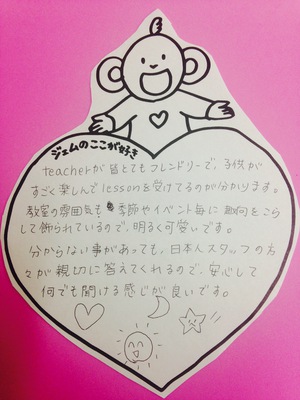 ジェムのここが好き
teacherが皆とてもフレンドリーで、子供が
すごく楽しんでlessonを受けてるのが分かります。
教室の雰囲気も季節やイベント毎に趣向をこら
して飾られているので、明るく可愛いです。
分からない事があっても、日本人スタッフの方
々が親切に答えてくれるので、安心して
何でも聞ける感じが良いです。